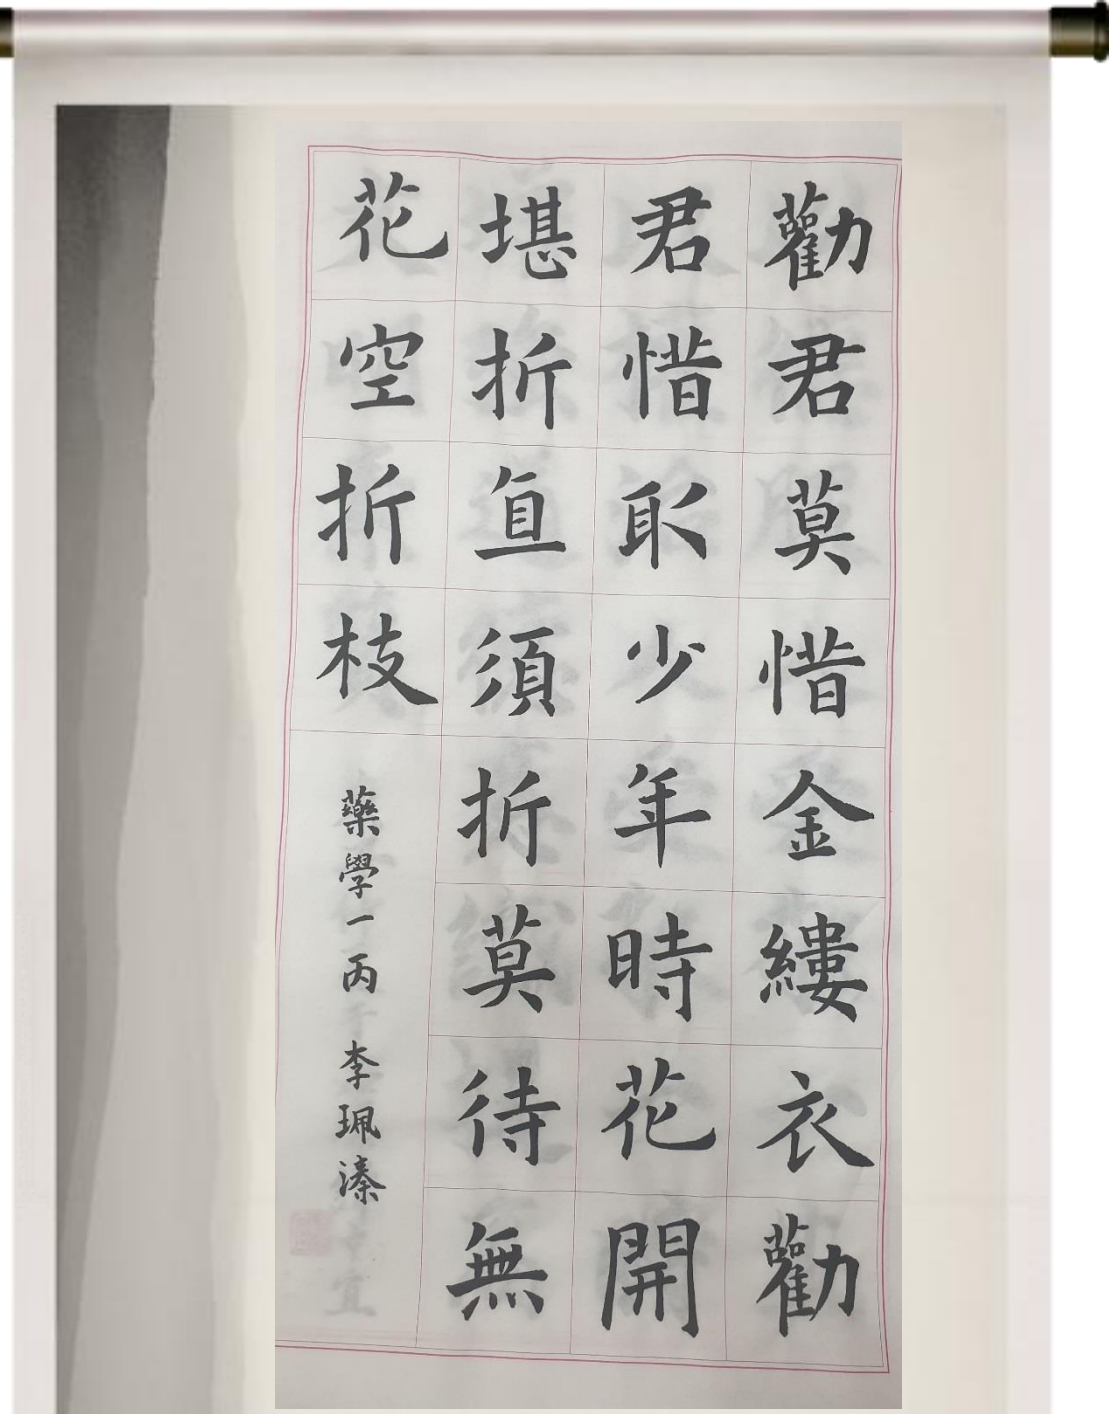 勸君莫惜金縷衣勸
君惜取少年時花開
堪折直須折莫待無
花空折枝
藥學一丙 李珮溱